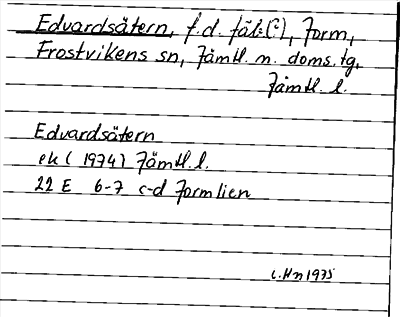 Edvardsätern, f.d. fäb:(?), Jorm,
Frostvikens sn, Jämtl. n. doms. tg,
Jämtl. l.
Edvardsätern
ek ( 1974) Jämtl. l.
22 E 6-7 c-d Jormlien
C.Hn 1975